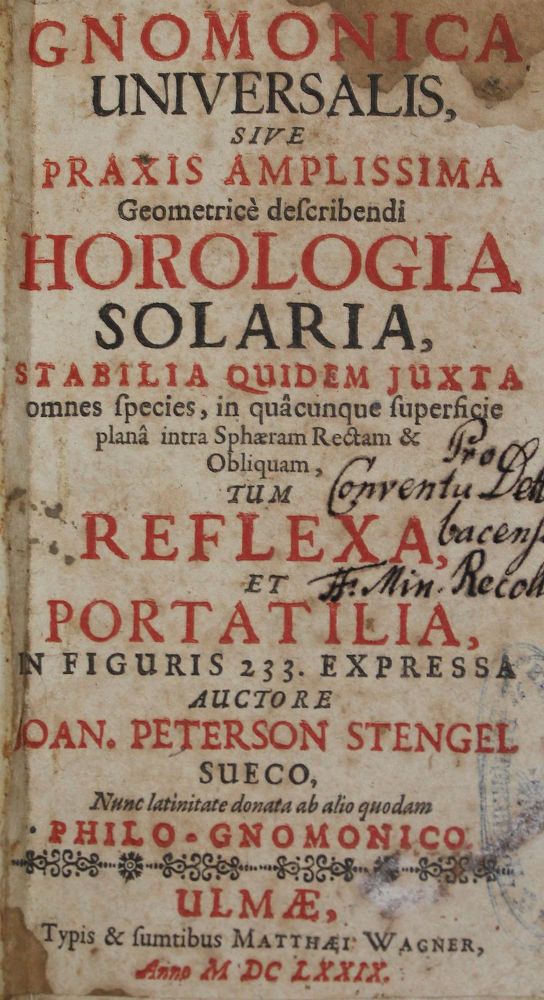 GNOMONICA
UNIVERSALIS,
SIVE
PRAXIS AMPLISSIMA
Geometricè deſcribendi
HOROLOGIA
SOLARIA,
STABILIA QUIDEM JUXTA
omnes ſpecies, in quâcunque ſuperficie
planâ intra Sphæram Rectam &
Obliquam,
TUM
REFLEXA,
ET
PORTATILIA,
IN FIGURIS 233. EXPRESSA
AUCTORE
JOAN. PETERSON STENGEL
SUECO,
Nunc latinitate donata ab alio quodam
PHILO-GNOMONICO.
ULMÆ,
Typis & ſumtibus MATTHÆI WAGNER,
Anno M DC LXXIX.
Pro
Conventu Dett
bacens
FF. Min. Recoll